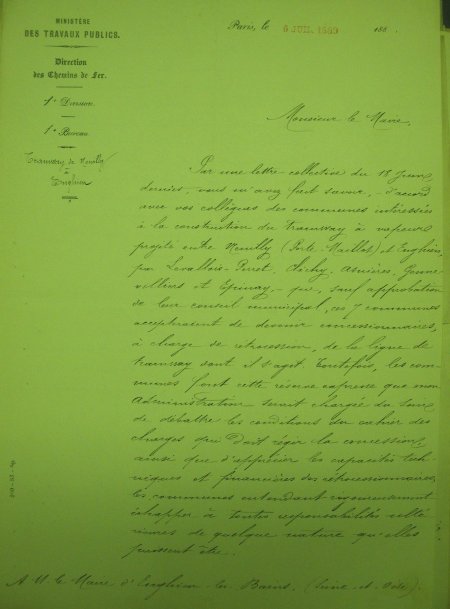 MINISTÈRE
DES TRAVAUX PUBLICS.
Direction
des Chemins de Fer.
1re Division.
1er Bureau.
Tramway de Neuilly
à
Enghien
Paris, le 6 JUIL. 1889 188 .
Monsieur le Maire,
Par une lettre collective du 18 Juin
dernier, vous m'avez fait savoir, d'accord
avec vos collègues des communes intéressées
à la construction du Tramway à vapeur
projeté entre Neuilly (Porte-Maillot) et Enghien,
par Levallois-Perret, Clichy, Asnières, Genne-
villiers et Epinay, que, sauf approbation
de leur conseil municipal, ces 7 communes
accepteraient de devenir concessionnaires,
à charge de rétrocession, de la ligne de
tramway dont il s'agit. Toutefois, les com-
munes font cette réserve expresse que mon
Administration serait chargée du soin
de débattre les conditions du cahier des
charges qui doit régir la concession
ainsi que d'apprécier les capacités tech-
niques et financières des rétrocessionnaires,
les communes entendant rigoureusement
échapper à toutes responsabilités ulté-
rieures de quelque nature qu'elles
puissent être.
A M. le Maire d'Enghien-les-Bains. (Seine-et-Oise).